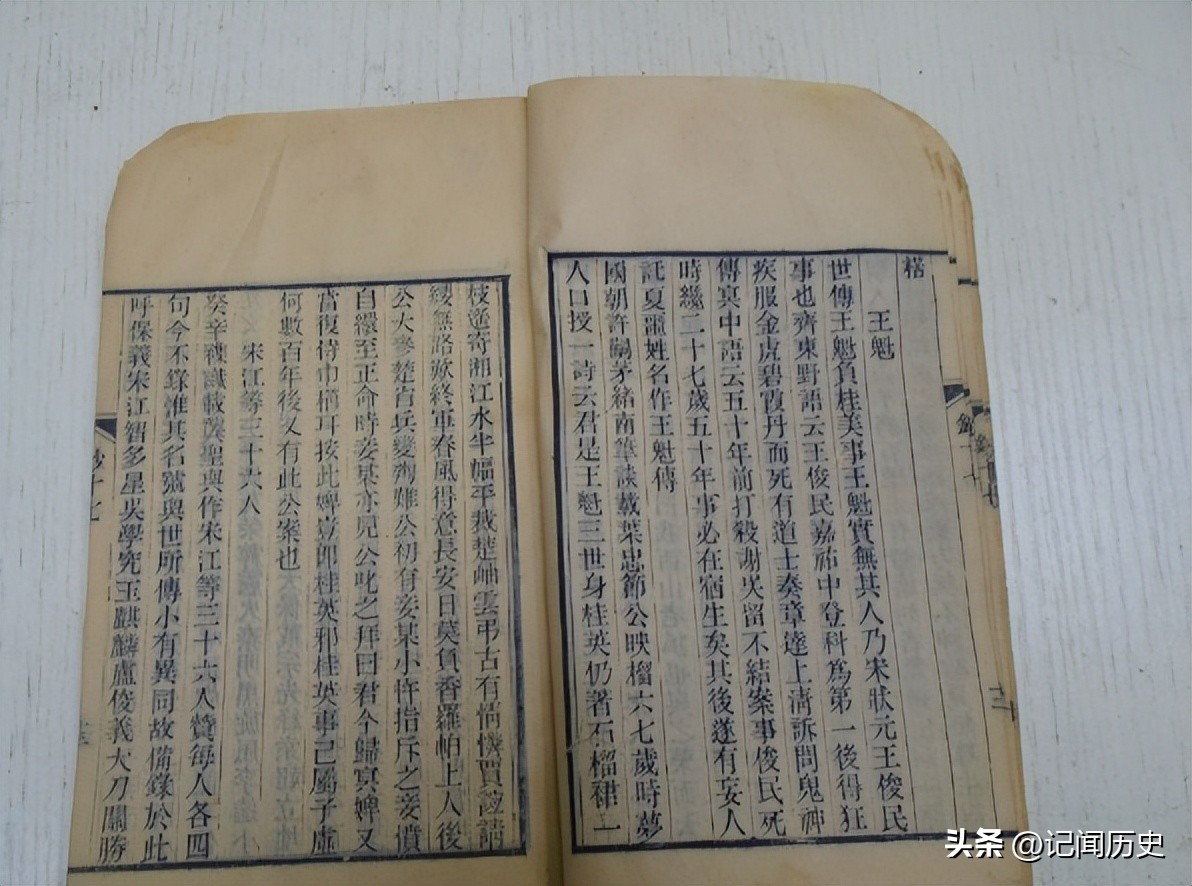 王魁
世傳王魁負桂英事王魁實無其人乃宋狀元王俊民
事也齊東野語云王俊民嘉祐中登科爲第一後得狂
疾服金虎碧霞丹而死有道士奏章達上清訴問鬼神
傳冥中語云五十年前打殺謝吳留不結案事俊民死
時纔二十七歲五十年事必在宿生矣其後遂有妄人
託夏噩姓名作王魁傳
國朝許嗣茅緒南筆談載葉忠節公映榴六七歲時夢
人口授一詩云君是王魁三世身桂英仍著石榴裙一
枝遥寄湘江水半幅平裁楚岫雲弔古有情憐賈誼請
纓無路歎終軍春風得意長安日莫負香羅帕上人後
公大參楚省兵變殉難公初有妾某小忤指斥之妾憤
自縊至正命時妾某亦見公叱之拜曰君今歸冥婢又
當復侍巾櫛耳按此婢豈卽桂英邪桂英事已屬子虛
何數百年後又有此公案也
宋江等三十六人
癸辛雜識載龔聖與作宋江等三十六人贊每人各四
句今不錄惟其名號與世所傳小有異同故備錄於此
呼保義宋江智多星吳學究玉麒麟盧俊義大刀關勝
鈔十七
头条 @记闻历史